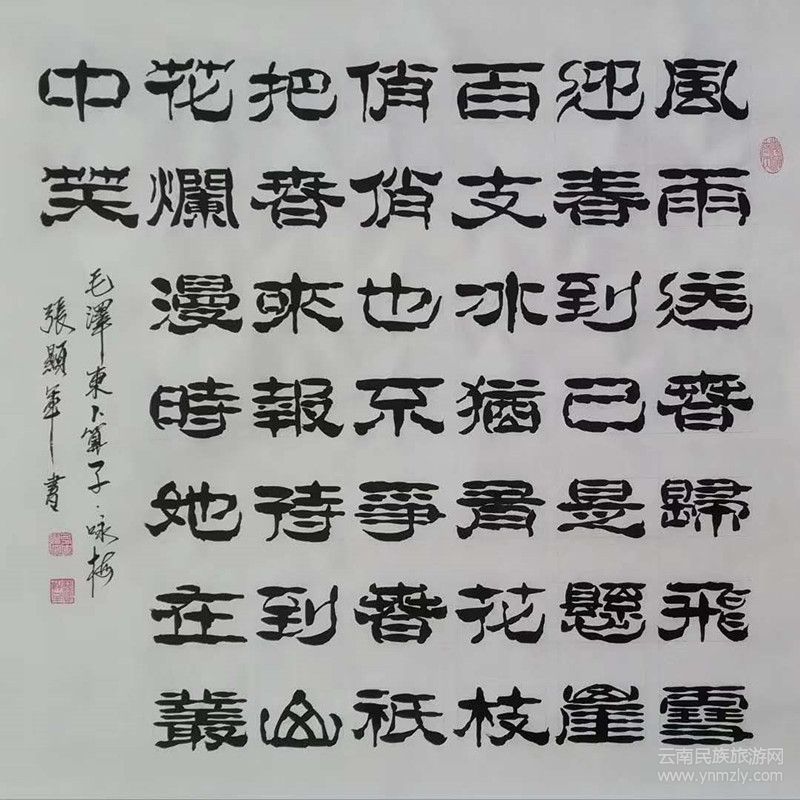 風雨送春歸飛雪
迎春到已是懸崖
百丈冰猶有花枝
俏俏也不爭春祇
把春來報待到山
花爛漫時她在叢
中笑
毛澤東卜算子·咏梅
張顯書
云南民族旅游网
www.ynmzly.com